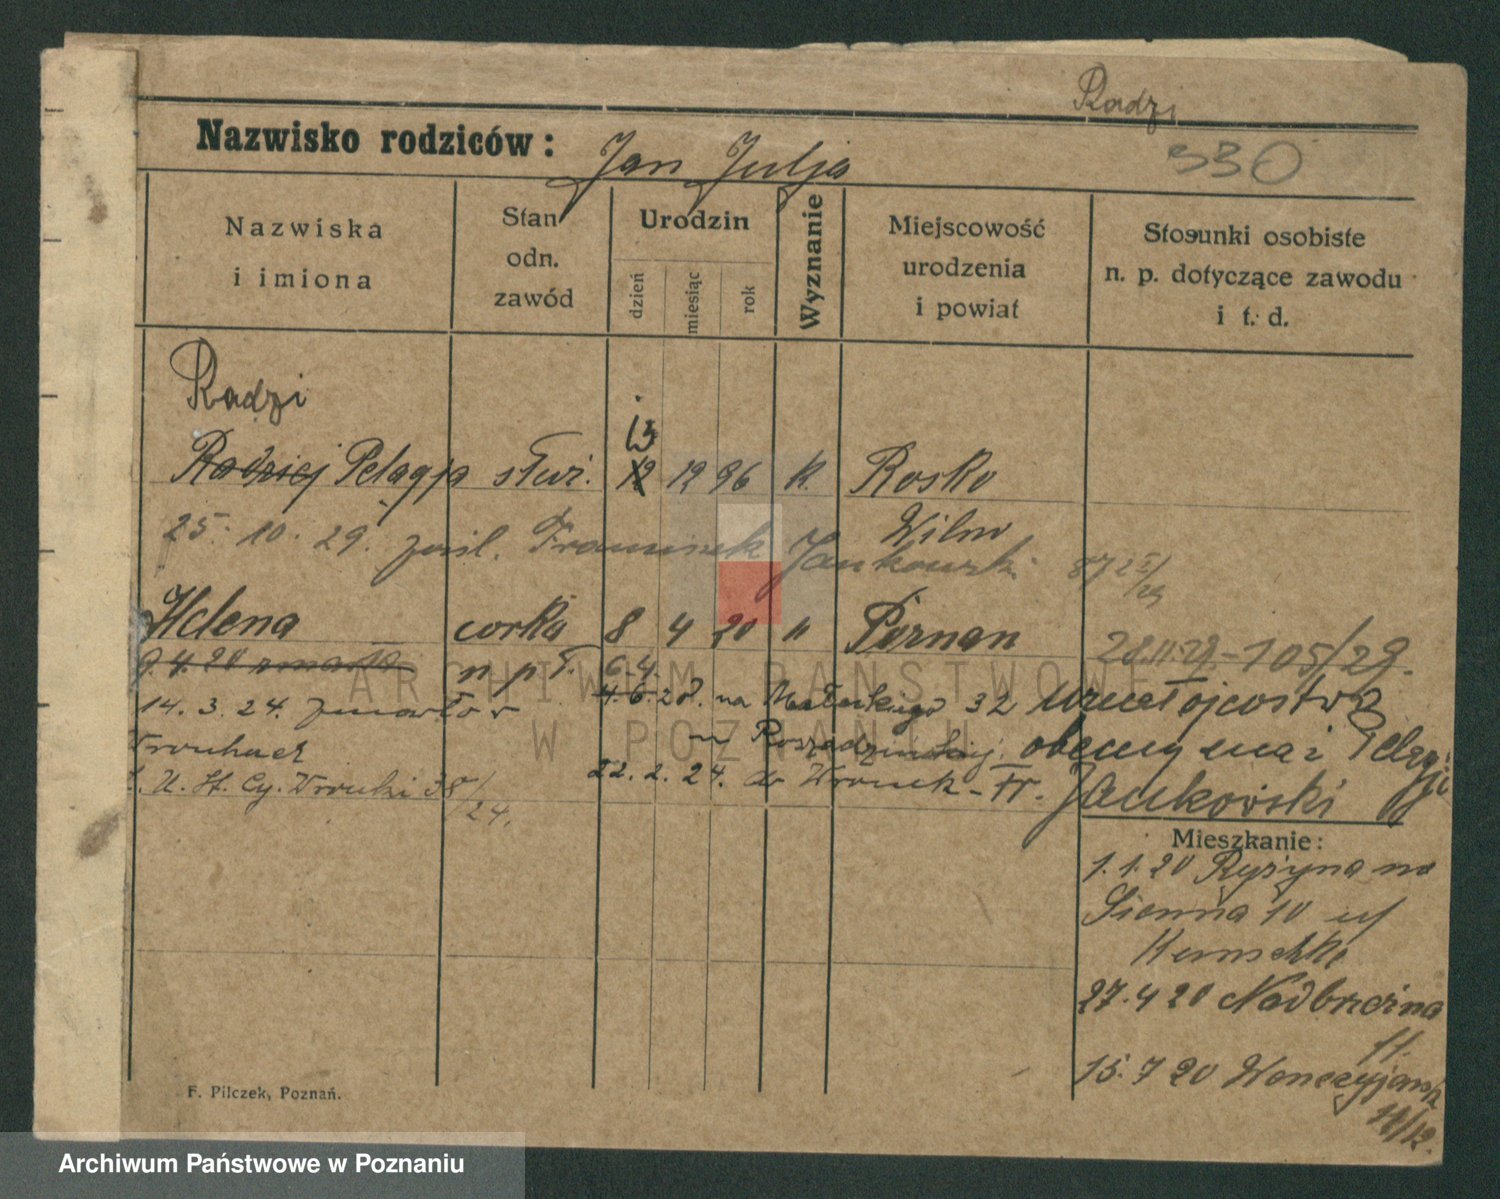 Radzi
Nazwisko rodziców: Jan Julja
330
Nazwiska
i imiona
Stan
odn.
zawód
Urodzin
dzień
miesiąc
rok
Wyznanie
Miejscowość
urodzenia
i powiat
Stosunki osobiste
n. p. dotyczące zawodu
i t. d.
Radzi
13
Radziej Pelagja służ. 12 12 96 k. Rosko
25. 10. 29. zaśl. Franciszek Jankowski
Helena córka 8 4 20 " Poznan
28.11.29. - 105/29.
9.4.20 zmarła n p T. 6.4.
14. 3. 24. zmarła w
4.6.20. na Małeckiego 32
Wronkach
22. 2. 24. do Wronek - Fr. Jankowski
obecny mąż Pelagji
U. St. Cy. Wronki 38/24.
Mieszkanie:
1. 1. 20 na
Sienna 10
27. 4 20 Nadbrzeżna
11.
15. 7 20
11/12.
F. Pilczek, Poznań.
ARCHIWUM PAŃSTWOWE
W POZNANIU
Archiwum Państwowe w Poznaniu